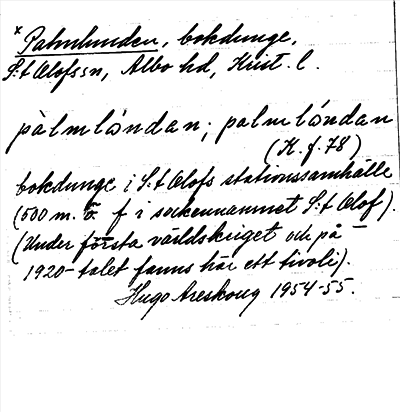 * Palmlunden, bokdunge,
S:t Olofs sn, Albo hd, Krist. l.
pàlmlȯndan; palmlȯndan
(K. f. 78)
bokdunge i S:t Olofs stationssamhälle
(500 m. ö. f i sockennamnet S:t Olof).
(Under första världskriget och på
1920-talet fanns här ett tivoli).
Hugo Areskoug 1954-55.